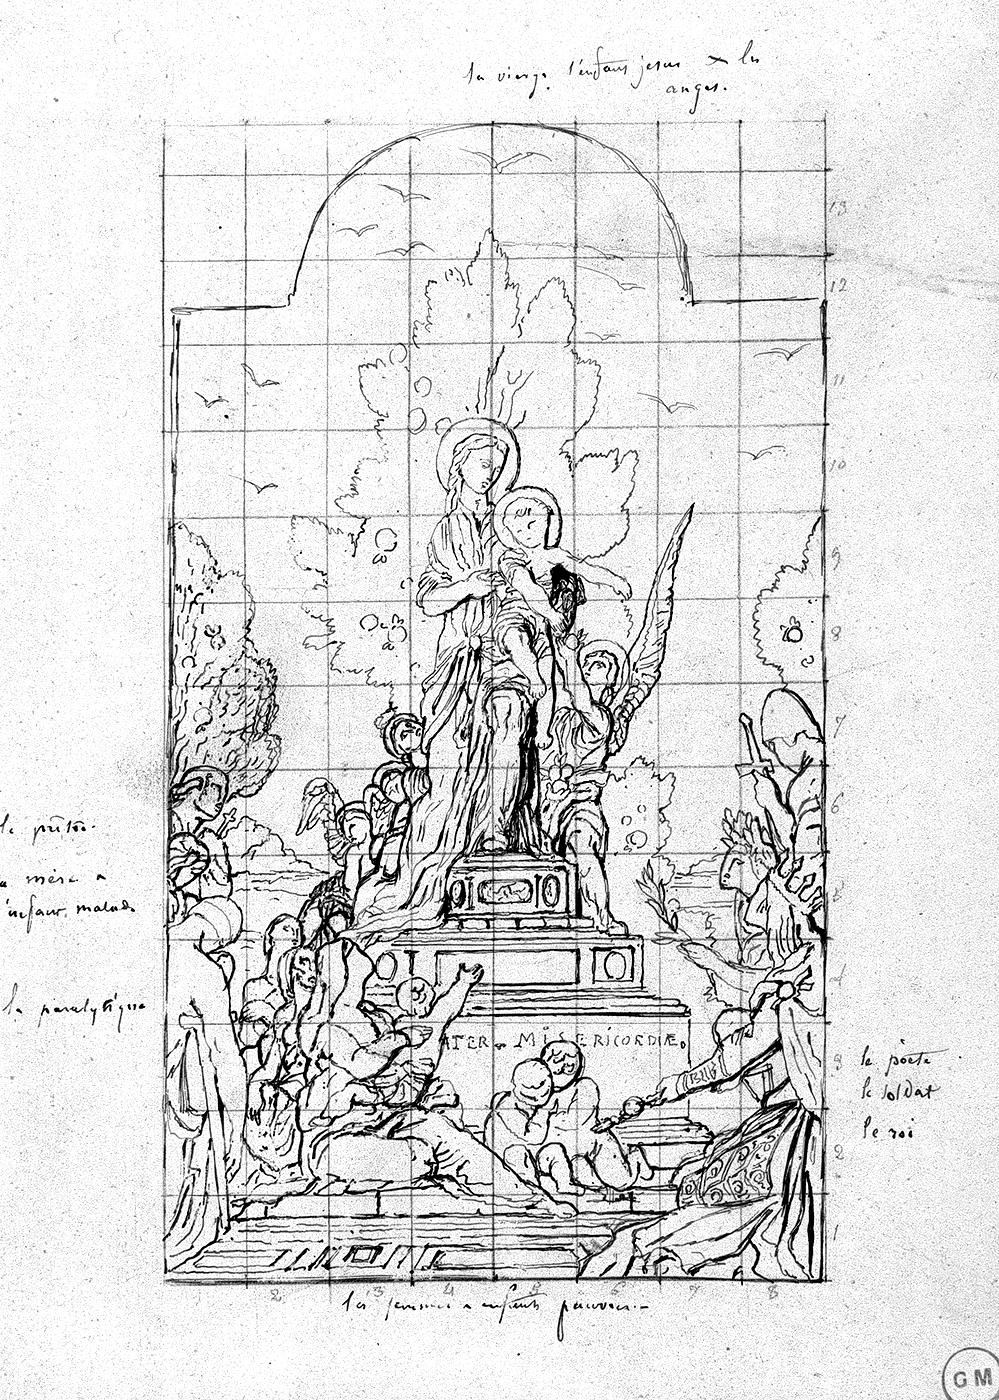 la vierge l'enfant jesus & les
anges.
13
12
11
10
9
8
7
6
le prêtre.
la mère &
l'enfant malade
5
la paralytique
4
ATER MISERICORDIÆ
3
le poète
le soldat
le roi
2
1
2 3 4 5 6 7 8
les femmes & enfants pauvres.
GM